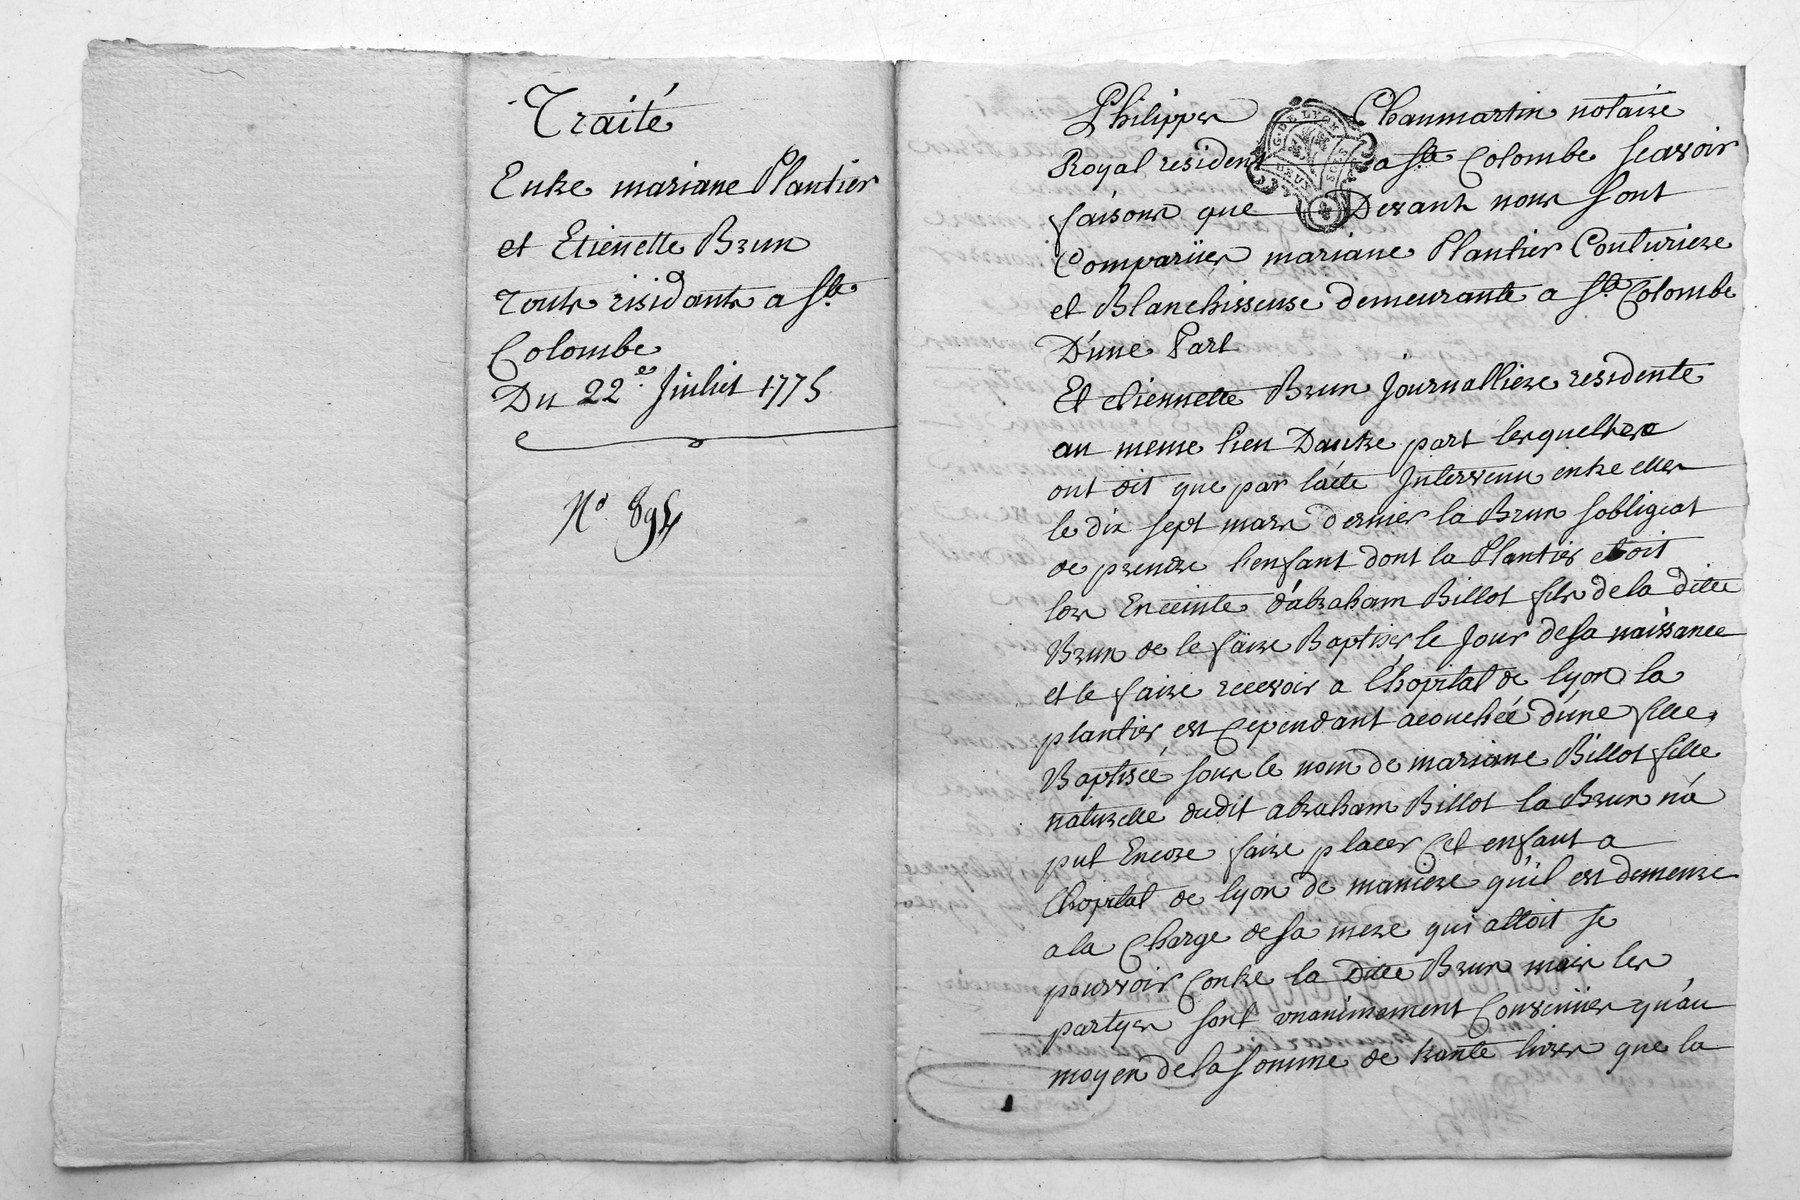 Traité
Entre mariane Plantier
et Etiennette Brun
Touts residants a Ste
Colombe
Du 22e. Juillet 1775
No. 894
Philippes Chaumartin notaire
Royal resident a Ste Colombe scavoir
faisons que Devant nous sont
Comparües mariane Plantier Couturiere
et Blanchisseuse demeurante a Ste Colombe
D'une Part
Et etiennette Brun Journalliere residente
au meme lieu Dautre part lesquelles
ont dit que par l'acte Intervenu entre elles
le dix sept mars dernier la Brun sobligeat
de prendre l'enfant dont la Plantier etoit
lors Enceinte d'abraham Billot fils de la ditte
Brun de le faire Baptiser le Jour de sa naissance
et le faire recevoir a l'hopital de lyon la
plantier est Cependant acouchée d'une fille
Baptisée sous le nom de mariane Billot fille
naturelle dudit abraham Billot la Brun n'a
put Encore faire placer Cet enfant a
l'hopital de lyon de maniere qu'il est demeure
a la Charge de sa mere qui alloit se
pourvoir Contre la Ditte Brun mais les
partyes sont unanimement Convenües qu'au
moyen de la somme de trante livres que la
G. DE LYON
DEUX SOLS